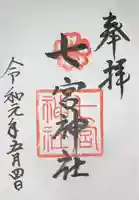 奉拝
七宮神社
令和元年五月四日
七宮神社